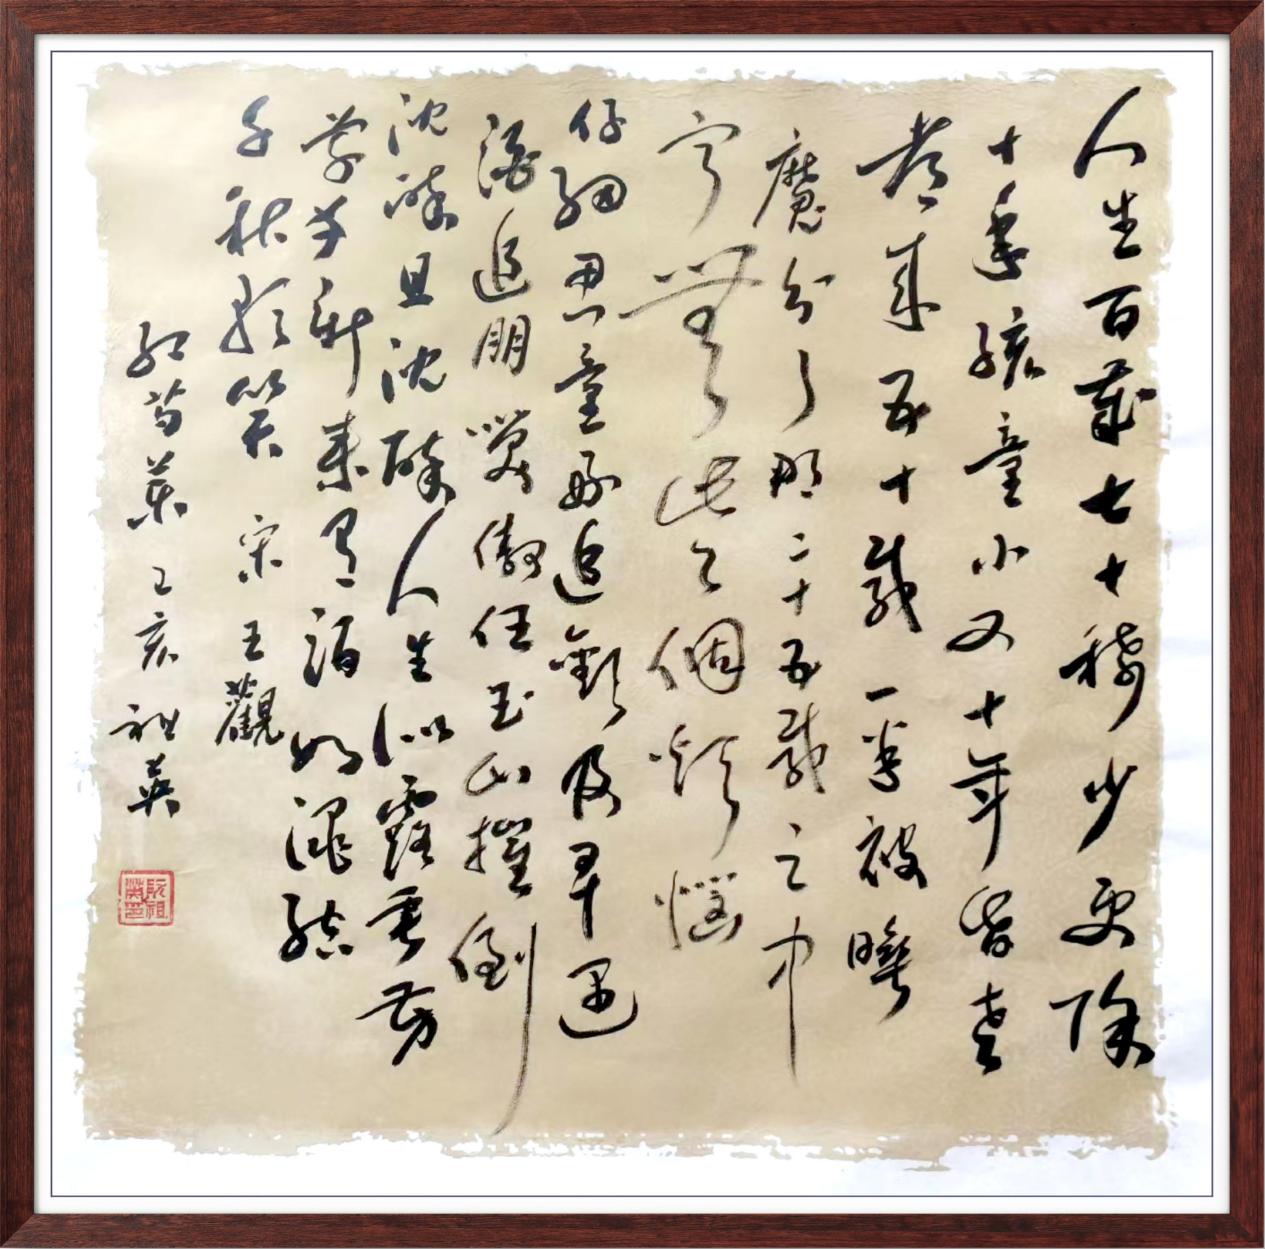 人生百歲七十稀少更除
十年孩童小又十年昏老
都来五十載一半被睡
魔分了那二十五載之中
宁無些個煩惱
仔細思量好追歡及早遇
酒追朋笑傲任玉山摧倒
沈醉且沈醉人生似露垂芳
草幸新来有酒如澠結
千秋歌笑 宋 王觀
红芍葯 己亥 祖英
阮祖英印